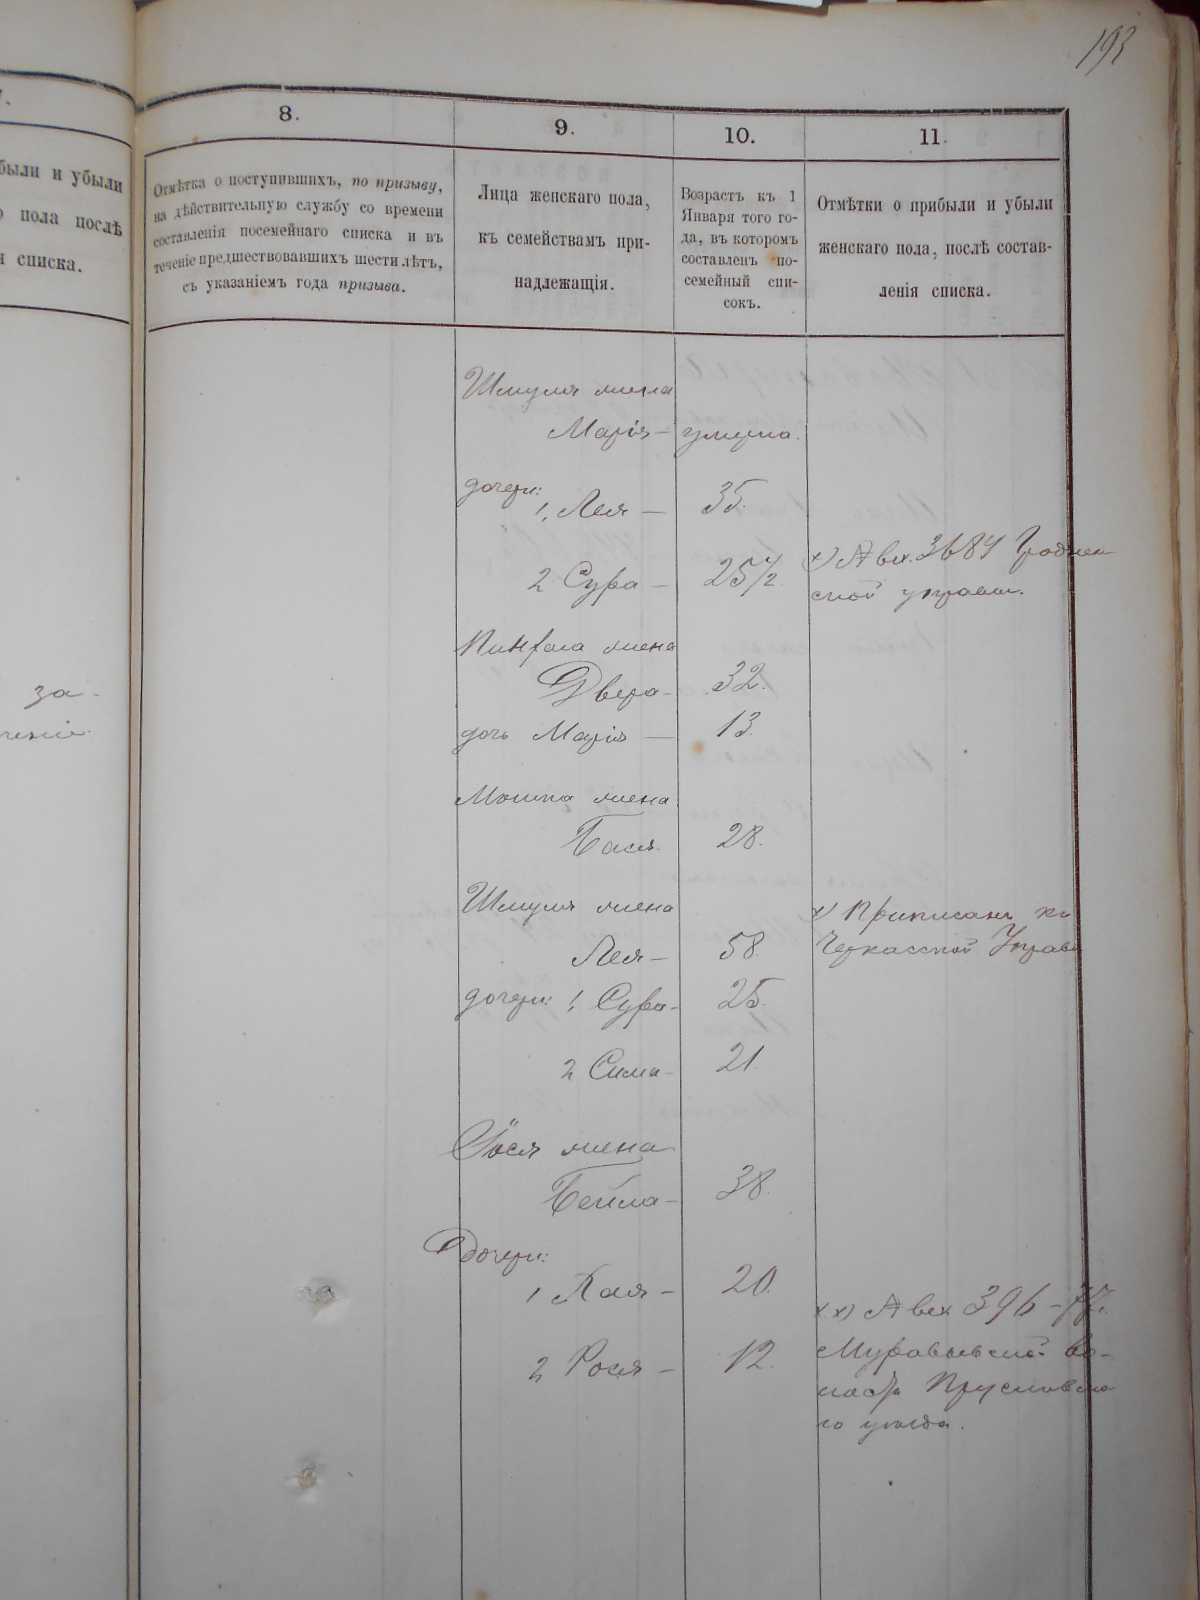 193
7.
были и убыли
о пола послѣ
я списка.
за-
ченіе.
8.
Отмѣтка о поступившихъ, по призыву,
на дѣйствительную службу со времени
составленія посемейнаго списка и въ
теченіе предшествовавшихъ шести лѣтъ,
съ указаніемъ года призыва.
9.
Лица женскаго пола,
къ семействамъ при-
надлежащія.
10.
Возрастъ къ 1
Января того го-
да, въ которомъ
составленъ по-
семейный спи-
сокъ.
11.
Отмѣтки о прибыли и убыли
женскаго пола, послѣ состав-
ленія списка.
Шмуля жена
Марія — умерла.
дочери:
1, Лея — 35.
2 Сура — 25 1/2.
х) № вх. 3684 Гроднен
ской управы.
жена
Двера — 32.
дочь Марія — 13.
Мошка жена
Бася 28.
Шмуля жена
Лея — 58.
х) Приписанъ къ
Черкасской Управѣ
дочери: 1, Сура — 25.
2 Сима — 21.
Іося жена
Бейла — 38.
Дочери:
1 Хая — 20.
2 Рося — 12.
хх) № вх 396 - 77.
во-
лости
го уѣзда.